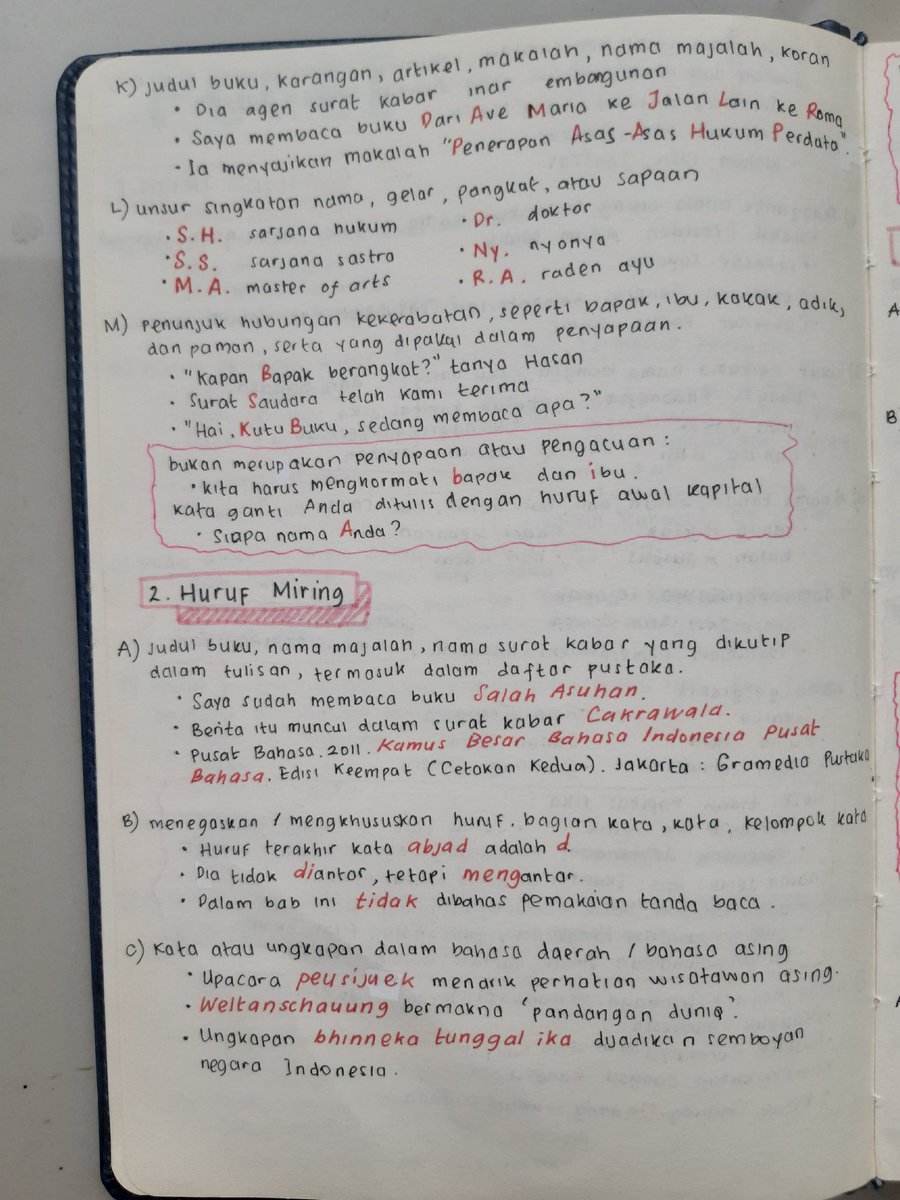 K) judul buku, karangan, artikel, makalah, nama majalah, koran
• Dia agen surat kabar inar embangunan
• Saya membaca buku Dari Ave Maria ke Jalan Lain ke Roma
• Ia menyajikan makalah "Penerapan Asas-Asas Hukum Perdata".
L) unsur singkatan nama, gelar, pangkat, atau sapaan
• S.H. sarjana hukum
• S.S. sarjana sastra
• M.A. master of arts
• Dr. doktor
• Ny. nyonya
• R.A. raden ayu
M) penunjuk hubungan kekerabatan, seperti bapak, ibu, kakak, adik,
dan paman, serta yang dipakai dalam penyapaan.
• "Kapan Bapak berangkat?" tanya Hasan
• Surat Saudara telah kami terima
• "Hai, Kutu Buku, sedang membaca apa?"
bukan merupakan penyapaan atau pengacuan :
• kita harus menghormati bapak dan ibu.
kata ganti Anda ditulis dengan huruf awal kapital
• Siapa nama Anda?
2. Huruf Miring
A) judul buku, nama majalah, nama surat kabar yang dikutip
dalam tulisan, termasuk dalam daftar pustaka.
• Saya sudah membaca buku Salah Asuhan.
• Berita itu muncul dalam surat kabar Cakrawala.
• Pusat Bahasa. 2011. Kamus Besar Bahasa Indonesia Pusat
Bahasa. Edisi Keempat (Cetakan Kedua). Jakarta : Gramedia Pustaka
B) menegaskan / mengkhususkan huruf. bagian kata, kata, kelompok kata
• Huruf terakhir kata abjad adalah d.
• Dia tidak diantar, tetapi mengantar.
• Dalam bab ini tidak dibahas pemakaian tanda baca.
C) kata atau ungkapan dalam bahasa daerah / bahasa asing
• Upacara peusijuek menarik perhatian wisatawan asing.
• Weltanschauung bermakna 'pandangan dunia'.
• Ungkapan bhinneka tunggal ika dijadikan semboyan
negara Indonesia.